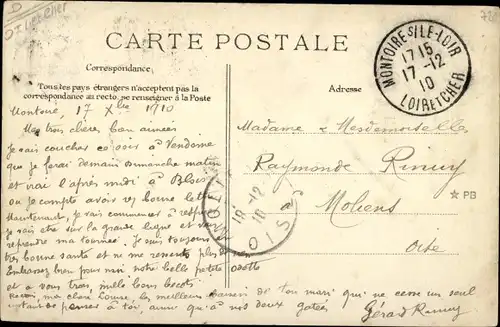 Loir et Cher
CARTE POSTALE
MONTOIRE S/LE-LOIR
17 15
17-12
10
LOIR ET CHER
Correspondance
Tous les pays étrangers n'acceptent pas la
correspondance au recto, se renseigner à la Poste
Adresse
17 Xbre 1910
Mes très chères bien aimées
Je vais coucher ce soir à Vendome
que je ferai demain Dimanche matin
et vrai l'après midi à Blois
ou je compte avoir vos bonne lettre
Maintenant, je vais commencer à
je vais être sur la grande ligne et vais
reprendre ma tournée. Je suis toujours en
très bonne santé et ne me ressens plus de rien
Embrassez bien pour moi notre belle petite Odette
et à vous trois, mille bons becots
ma chère Louise, les meilleurs baisers de ton mari qui ne cesse un seul
instant de penser à toi, ainsi qu'à nos deux gatées
Gérard
Madame & Mesdemoiselle
Raymonde
à
Moliens
Oise
18-12
10
OISE
PB